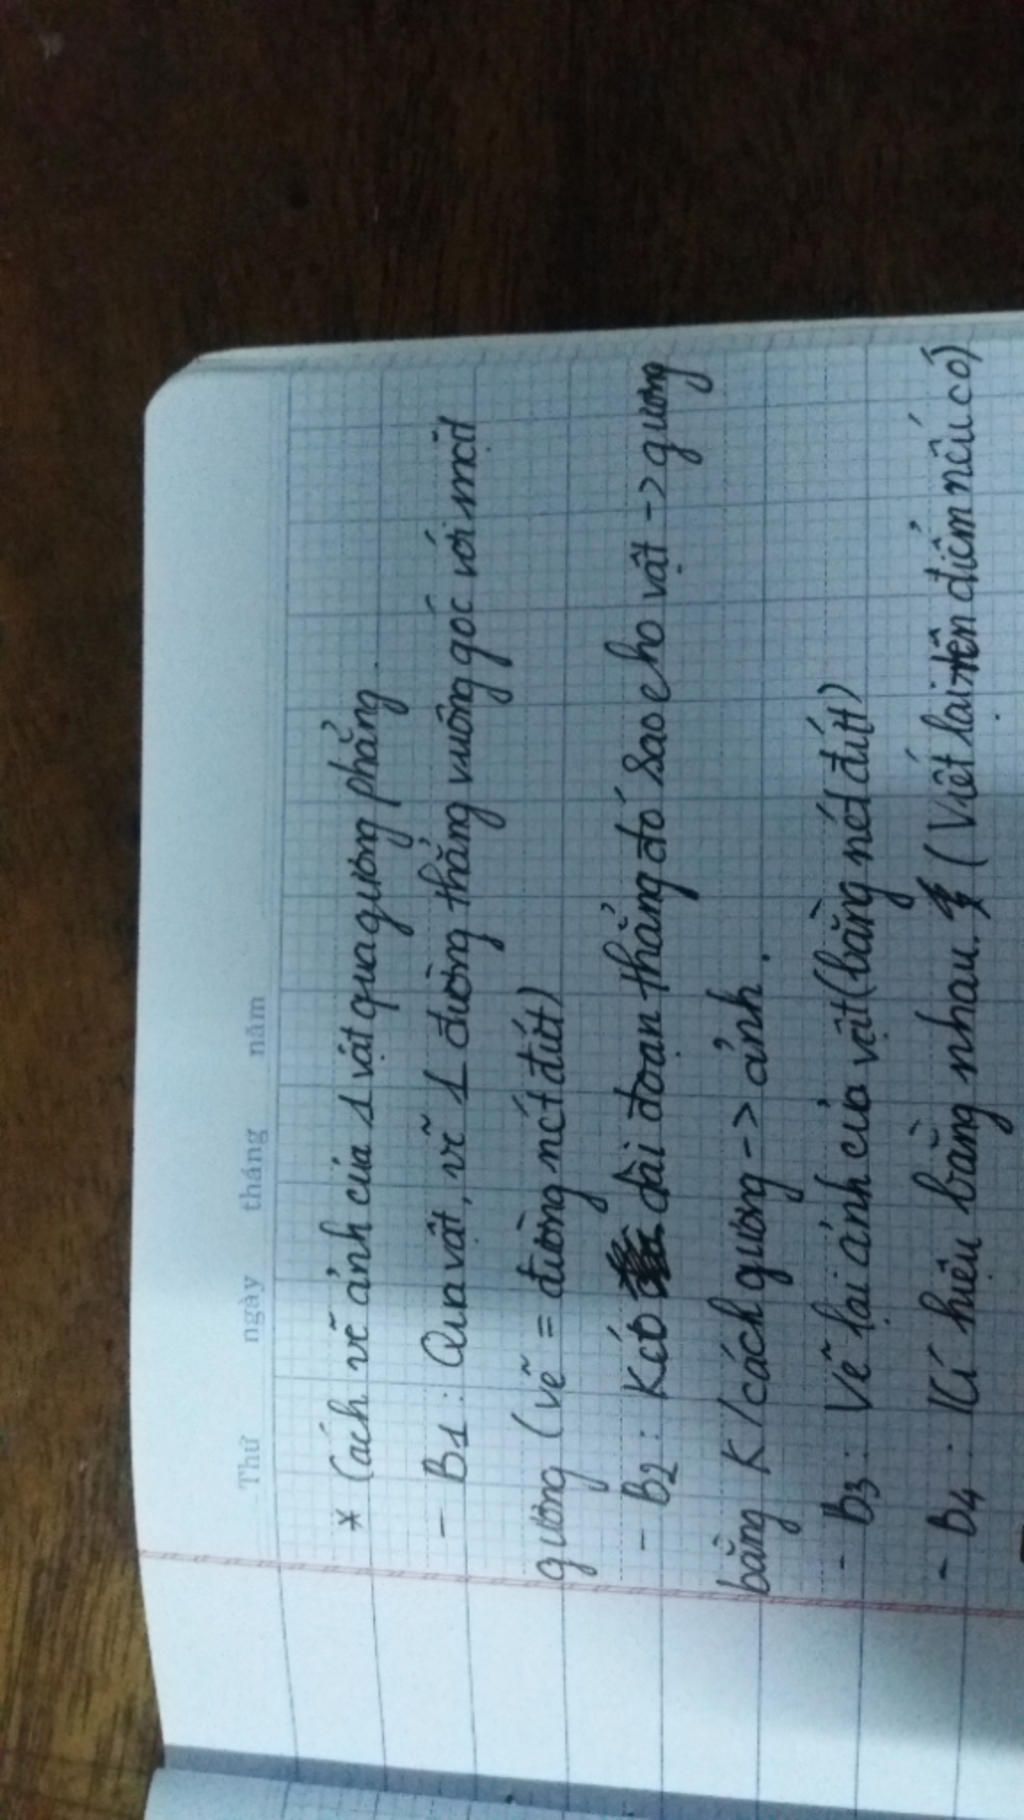 Thứ ngày tháng năm
* Cách vẽ ảnh của 1 vật qua gương phẳng.
- B1: Qua vật, vẽ 1 đường thẳng vuông góc với mặt
gương (vẽ = đường nét đứt)
- B2: Kéo dài đoạn thẳng đó sao cho vật -> gương
bằng K/cách gương -> ảnh.
- B3: Vẽ lại ảnh của vật (bằng nét đứt)
- B4: Kí hiệu bằng nhau. (Viết lại tên điểm nếu có)